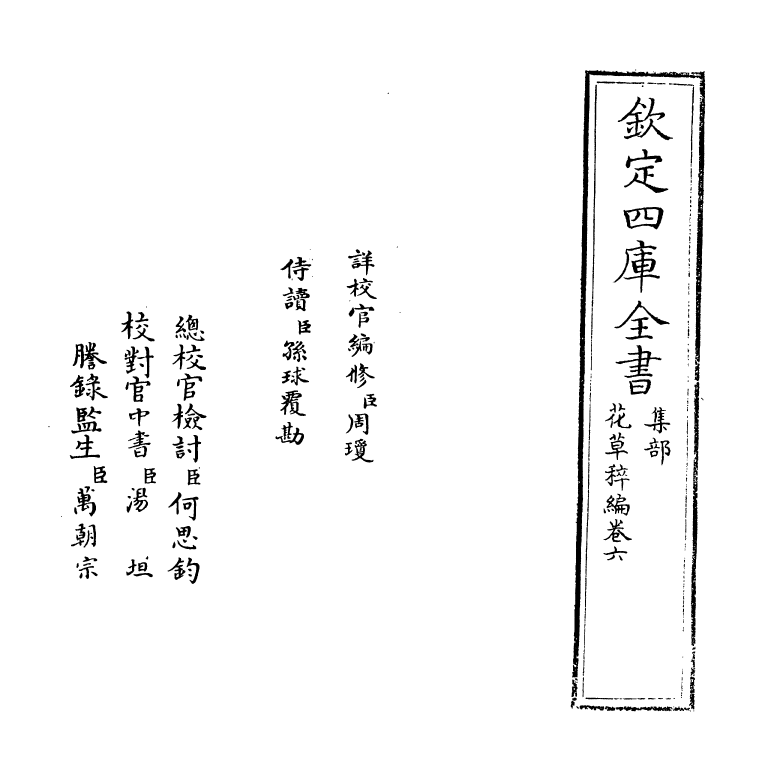 欽定四庫全書
集部
花草稡編卷六
詳校官編修臣周瓊
侍讀臣孫球覆勘
總校官檢討臣何思鈞
校對官中書臣湯垣
謄錄監生臣萬朝宗